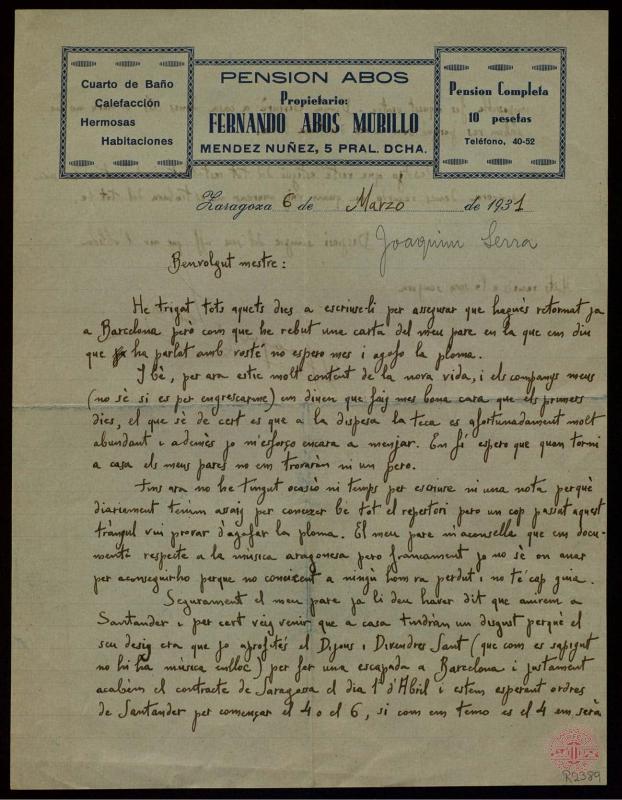 Cuarto de Baño
Calefacción
Hermosas
Habitaciones
PENSION ABOS
Propietario:
FERNANDO ABOS MURILLO
MENDEZ NUÑEZ, 5 PRAL. DCHA.
Pension Completa
10 pesetas
Teléfono, 40-52
Zaragoza 6 de Març de 1931
Joaquim Serra
Benvolgut mestre:
He trigat tots aquets dies a escriure-li per assegurar que hagués retornat ja
a Barcelona però com que he rebut una carta del meu pare en la que em diu
que ha parlat amb vostè no espero mes i agafo la ploma.
I bé, per ara estic molt content de la nova vida, i els companys meus
(no sé si es per engrescarme) em diuen que faig mes bona cara que els primers
dies, el que sé de cert es que a la dispesa la teca es afortunadament molt
abundant i ademés jo m'esforço encara a menjar. En fi espero que quan torni
a casa els meus pares no em trovaràn ni un pero.
Fins ara no he tingut ocasió ni temps per escriure ni una nota perquè
diariament tenim assaig per coneixer bé tot el repertori pero un cop passat aquest
tràngul vui provar d'agafar la ploma. El meu pare m'aconsella que em docu-
menti respecte a la música aragonesa pero francament jo no sé on anar
per aconseguirho perque no coneixent a ningú hom va perdut i no té cap guia.
Segurament el meu pare ja li deu haver dit que anirem a
Santander i per cert veig venir que a casa tindràn un disgust perquè el
seu desig era que jo aprofités el Dijous i Divendres Sant (que com es sapigut
no hi ha música enlloc) per fer una escapada a Barcelona i justament
acabem el contracte de Saragossa el dia 1er d'Abril i estem esperant ordres
de Santander per començar el 4 o el 6, si com em temo es el 4 em serà
R2389